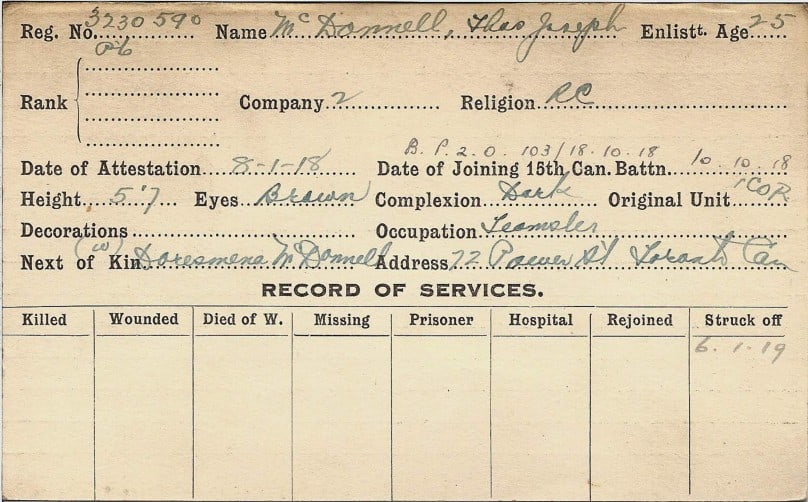 Reg. No. 3230590 Name McDonnell, Thos Joseph Enlistt. Age 25
Pte
Rank Company 2 Religion RC
B. P. 2. O 103/18.10.18
Date of Attestation 8-1-18 Date of Joining 15th Can. Battn. 10.10.18
Height 5'7 Eyes Brown Complexion Dark Original Unit 1 COR
Decorations Occupation Teamster
Next of Kin (W) McDonnell Address 72 Power St Toronto Can
RECORD OF SERVICES.
Killed Wounded Died of W. Missing Prisoner Hospital Rejoined Struck off
6.1.19